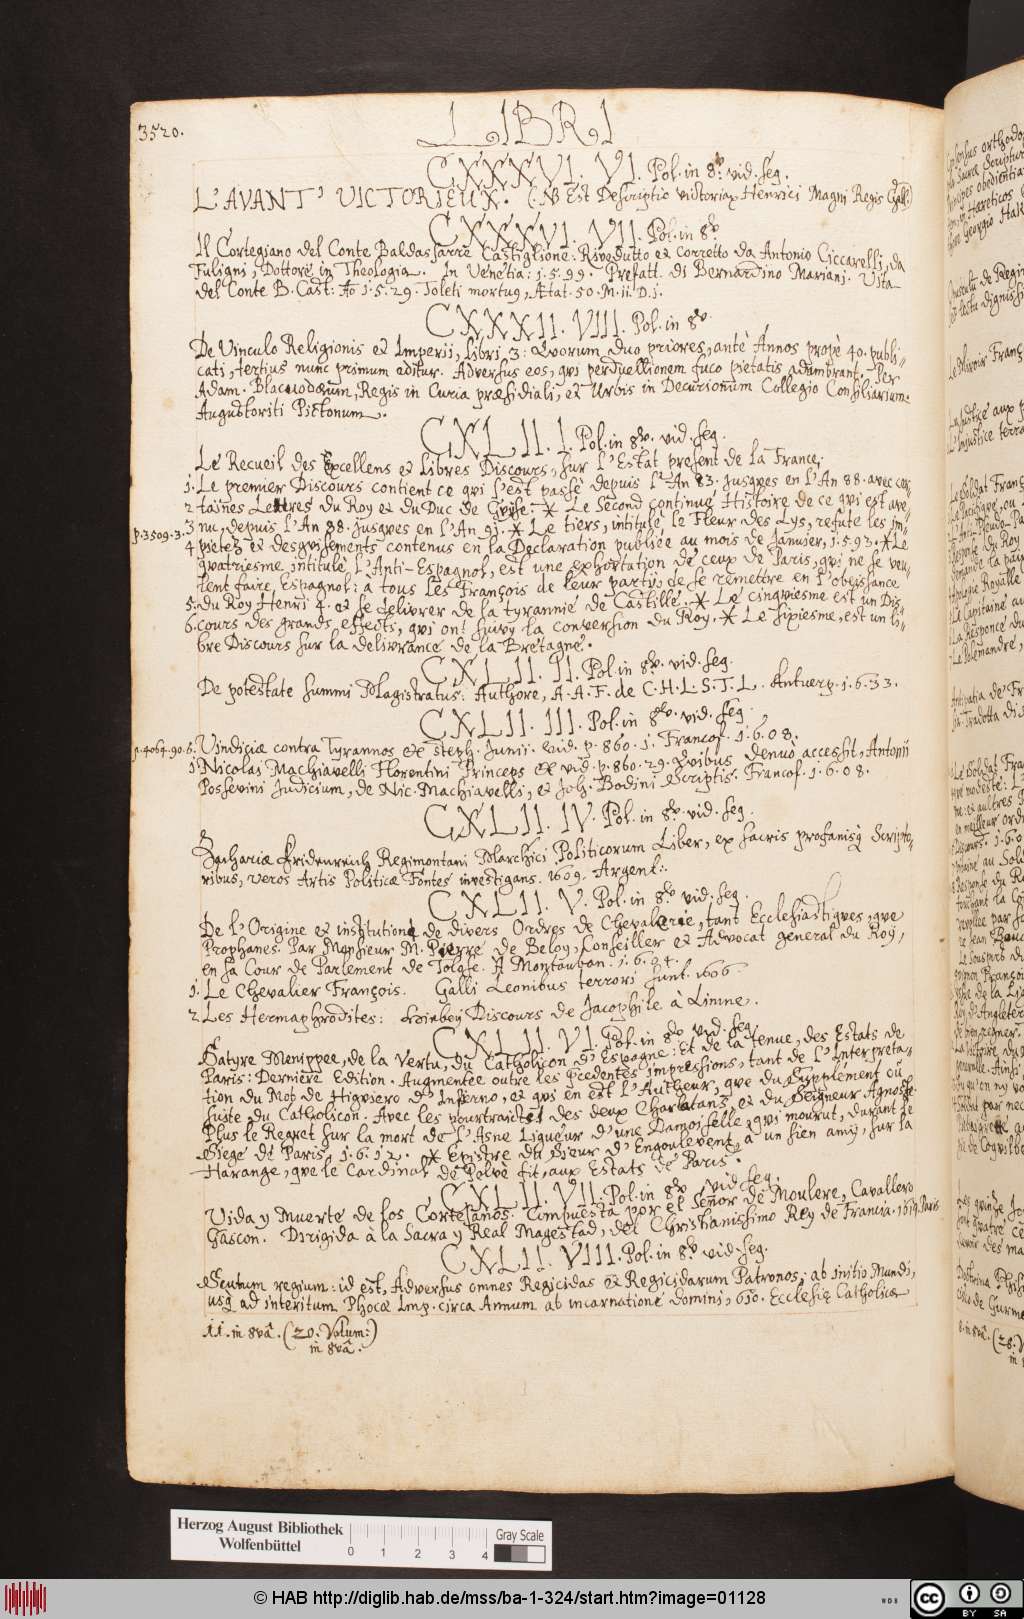 3520.
LIBRI
CXXXVI. VI. Pol. in 8º. vid. seg.
L'AVANT' VICTORIEUX. (NB Est Descriptio victoriar Henrici Magni Regis Gall.)
CXXXVI. VII. Pol. in 8º
Il Cortegiano del Conte Baldassarre Castiglione. Riveduto et corretto da Antonio Ciccarelli, da
Fuligni, Dottore in Theologia. In Venetia: 1.5.99. Prefatt. di Bernardino Mariani. Vita
del Conte B. Cast: Aº 1.5.29. Toleti mortuq, Ætat. 50. M. ii. D. i.
CXXXII. VIII. Pol. in 8º.
De Vinculo Religionis et Imperii, Libri, 3: Quorum duo priores, ante Annos propè 40. publi-
cati, tertius nunc primum editur. Adversus eos, qui perduellionem fuco pietatis adumbrant. Per
Adam. Blacuodæum, Regis in Curia præsidiali, et Urbis in Decurionum Collegio Consiliarium.
Augustoriti Pictonum.
CXLII. I. Pol. in 8º. vid. seg.
Le Recueil des Excellens et Libres Discours, sur l'Estat present de la France.
1. Le premier Discours contient ce qui s'est passé depuis l'An 83. jusques en l'An 88. avec cer-
2 taines Lettres du Roy et du Duc de Guyse. * Le Second continue Histoire de ce qui est ave-
p. 3509. 3. 3 nu, depuis l'An 88. jusques en l'An 91. * Le tiers, intitulé le Fleur des Lys, refute les im-
4 pietez et desguisements contenus en la Declaration publiée au mois de Janvier, 1.5.93. * Le
quatriesme intitulé L'Anti-Espagnol, est une exhortation de ceux de Paris, qui ne se veu-
lent faire Espagnol: à tous les François de leur party, de se remettre en l'obeissance
5. du Roy Henri 4. et se delivrer de la tyrannie de Castille. * Le cinquiesme est un Dis-
6. cours des grands effects, qui ont suivy la conversion du Roy. * Le sixiesme, est un li-
bre Discours sur la delivrance de la Bretagne.
CXLII. II. Pol. in 8º. vid. seg.
De potestate summi Magistratus: Authore, A. A. F. de C. H. L. S. T. L. Antuerp. 1.6.33.
CXLII. III. Pol. in 8º. vid. seg.
p. 4064. 90. 6. Vindiciæ contra Tyrannos etc Steph. Junii. Vid. p. 860. 1. Francof. 1.6.08.
1 Nicolai Machiavelli Florentini Princeps Et vid. p. 860. 29. Quibus denuò accessit, Antonii
Possevini Judicium, de Nic. Machiavelli, et Joh. Bodini Scriptis. Francof. 1.6.08.
CXLII. IV. Pol. in 8º. vid. seg.
Zachariæ Fridenreich Regimontani Marchici Politicorum Liber, ex sacris profanisq Scripto-
ribus, veros Artis Politicæ Fontes investigans. 1609. Argent.
CXLII. V. Pol. in 8º vid. seg.
De l'Origine et institution de divers Ordres de Chevalerie, tant Ecclesiastiques, que
Prophanes. Par Monsieur M. Pierre de Beloy, Conseiller et Advocat general du Roy,
en sa Cour de Parlement de Tolose. A Montauban. 1.6.04.
1. Le Chevalier François. Galli Leonibus terrori sunt. 1606.
2. Les Hermaphrodites: hinbey Discours de Jacophile à Limne.
CXLII. VI. Pol. in 8º vid. seg.
Satyre Menippee, de la Vertu, du Catholicon d'Espagne: Et de la tenue, des Estats de
Paris: Derniere Edition. Augmentée outre les precedentes impressions, tant de l'Interpreta-
tion du Mot de Higuiero d'Inferno, et qui en est l'Autheur, que du Supplément ou
suite du Catholicon. Avec les pourtraictes des deux Charlatans et du Seigneur Agnoste.
Plus le Regret sur la mort de l'Asne Ligueur d'une Damoselle, qui mourut, durant le
Siege de Paris, 1.6.12. * Epistre du Sieur d'Engoulevent à un sien amy, sur la
Harange, que le Cardinal de Pelvè fit, aux Estats de Paris.
CXLII. VII. Pol. in 8º vid. seg.
Vida y Muerte de los Cortesanos. Compuesta por el Señor de Moulere, Cavallero
Gascon. Dirigida à la Sacra y Real Magestad, del Christianissimo Rey de Francia. 1614. Paris
CXLII. VIII. Pol. in 8º. vid. seg.
Scutum regium: id est, Adversus omnes Regicidas et Regicidarum Patronos; ab initio Mundi,
usq ad interitum Phocæ Imp. circa Annum ab incarnatione domini, 610. Ecclesiæ Catholicæ
11. in 8vâ. (20. Volum:)
in 8vâ.
Herzog August Bibliothek
Wolfenbüttel
0 1 2 3 4
Gray Scale
© HAB http://diglib.hab.de/mss/ba-1-324/start.htm?image=01128
WDB
cc BY SA